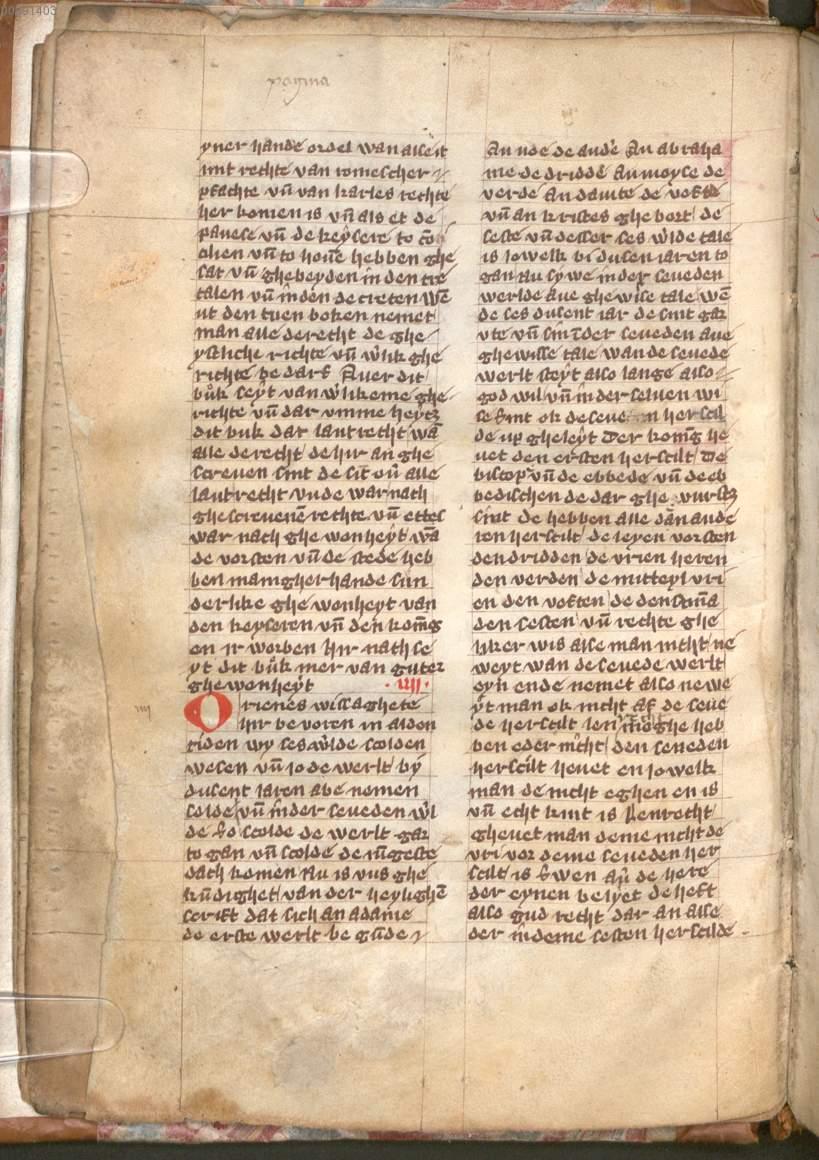 00291403
pagina
yner hande ordel wan alle it
mit rechte van romescher
phachte vñ van karles rechte
her komen is vñ als et de
pauese vñ de keysere to
cilien vñ to houe hebben ghe
sat vñ ghebeyden in den
talen vñ in den decreten wē
ut den tuen boken nemet
man alle derecht de ghe
ystliche richte vñ wlik ghe
richte bedarf Auer dit
buk seyt van wlikeme ghe
richte vñ dar vmme heytz
dit buk dar lantrecht wā
alle derecht de hir an ghe
screuen sint de sit ouer alle
lantrecht vnde war nach
ghescreuenē rechte vñ ettes
war nach ghe wonheyt wā
de vorsten vñ de stede heb
ben manigherhande sun
derlike ghe wonheyt van
den keyseren vñ den konīg
en ir worben hir nach se
yt dit buk mer van guter
ghewonheyt · IIII ·
Orienes wissaghete
IIII
hir bevoren in alden
tiden wy ses wlde scolden
wesen vñ io de werlt by
dusent iaren abe nemen
solde vñ in der seueden wl
de so scolde de werlt gar
to gan vñ scolde de iūgeste
dach komen Nu is vns ghe
kūdighet van der heylighē
scrift dat sich an adame
de erste werlt be gūde
An noe de ande An abraha
me de dridde An moyse de
verde An dauite de vefte
vñ an kristes ghe bort de
seste vñ desser ses wlde tale
is iowelk bi dusen iaren to
gan Nu sy we in der seueden
werlde ane ghewise tale wē
de ses dusent iar de sint gar
vte vñ sint in der seueden ane
ghewisse tale wan de seuede
werlt steyt also lange also
god wil vñ in der seluen wi
se sint ok de seuen herscil
de up gheleyt Der konīg he
uet den ersten herscilt De
biscop vñ de ebbede vñ de eb
bedischen de dar ghe vurstz
sint de hebben alle dān ande
ren herscilt de leyen vorsten
den dridden de vrien heren
den verden de mitteyl vri
en den veften de denstma
den sesten vñ rechte ghe
liker wis alse man nicht ne
weyt wan de seuede werlt
eyn ende nemet also ne we
yt man ok nicht af de seue
de herscilt len moghe heb
ben eder nicht den seueden
herscilt heuet en iowelk
man de nicht eghen en is
vñ echt kint is Lenrecht
gheuet man deme nicht de
vri vor deme seueden her
scilt is Swen au de here
der eynen belyet de heft
also gud recht dar an alse
der in deme sesten herscilde